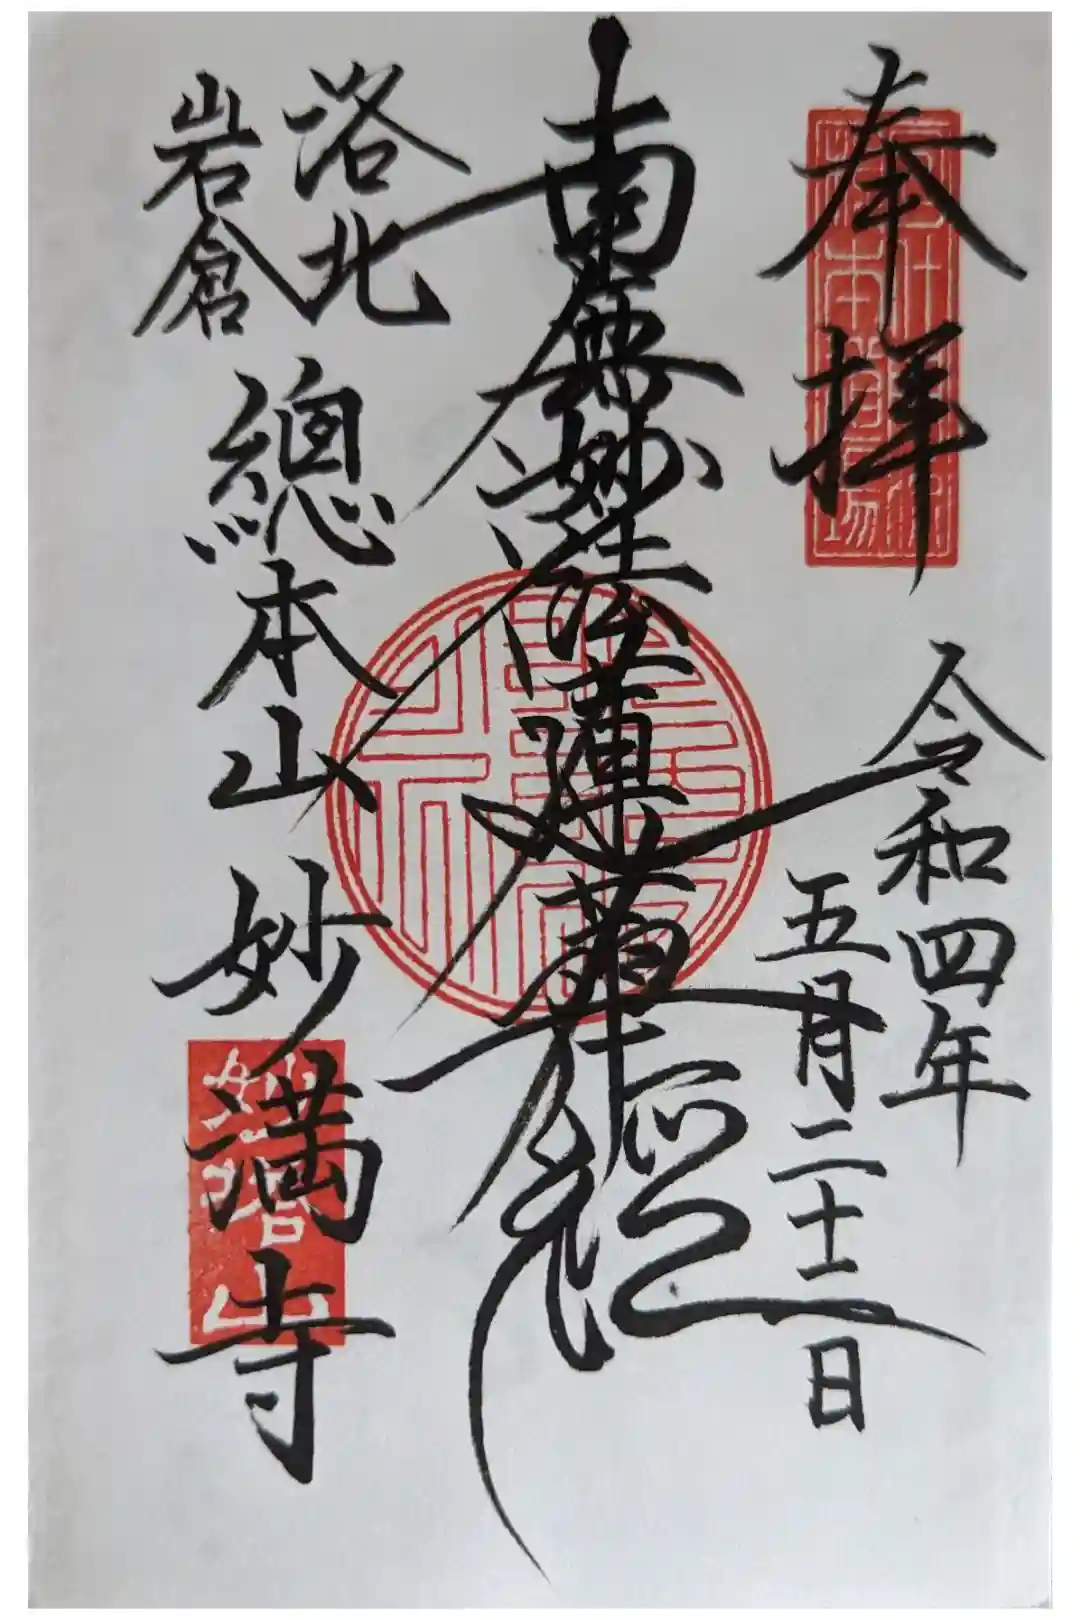 奉拝
令和四年
五月二十二日
南無妙法蓮華経
洛北
岩倉
總本山 妙満寺
妙塔山